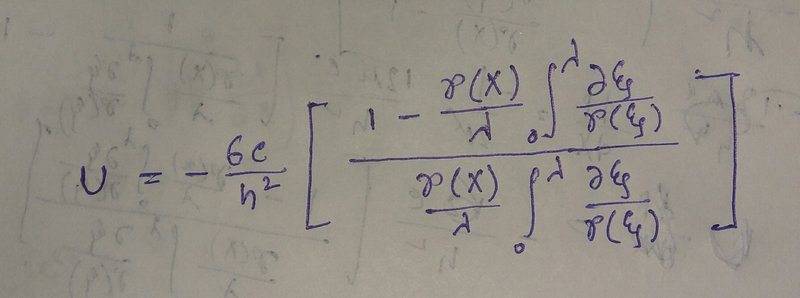 U = - \frac{6c}{h^2} \left[ \frac{1 - \frac{\gamma(x)}{\lambda} \int_0^\lambda \frac{\partial \xi}{\gamma(\xi)}}{\frac{\gamma(x)}{\lambda} \int_0^\lambda \frac{\partial \xi}{\gamma(\xi)}} \right]